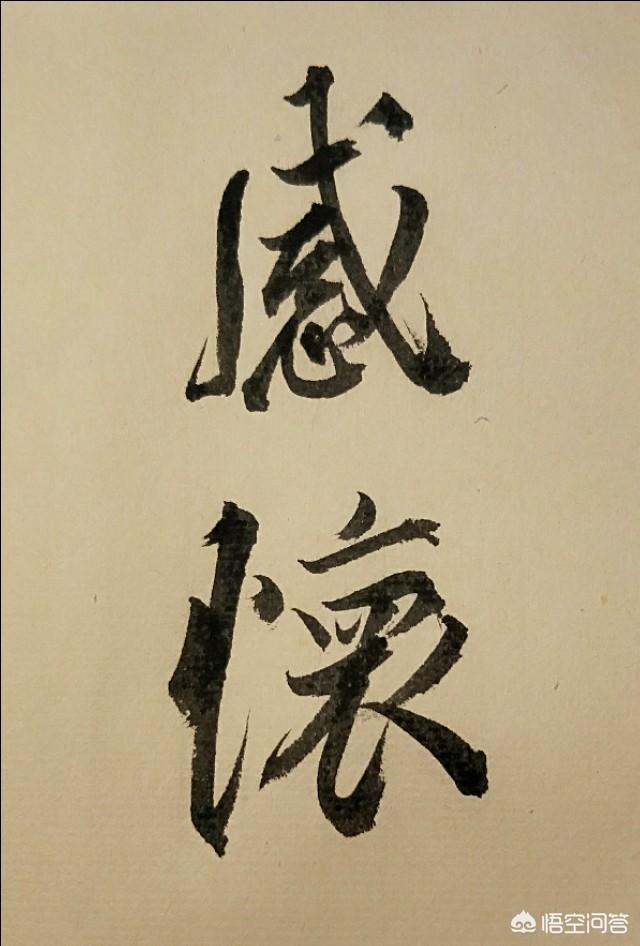 感
懷
悟空问答